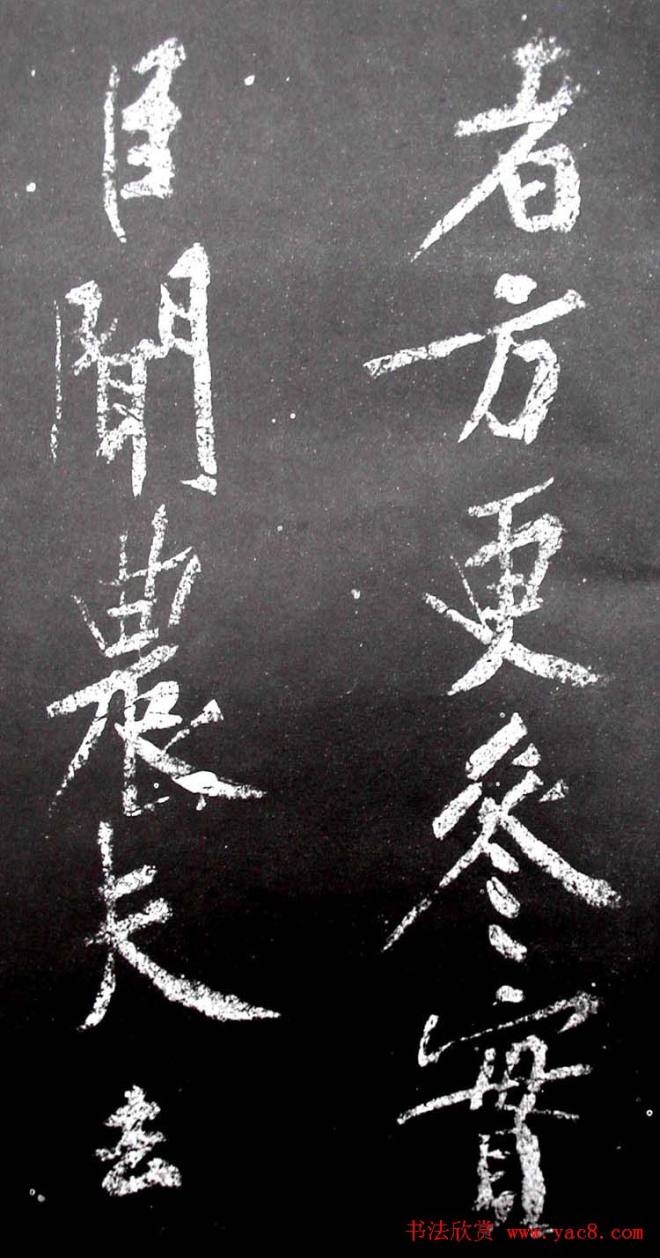 者方更參實
臣聞農夫去
书法欣赏 www.yac8.com